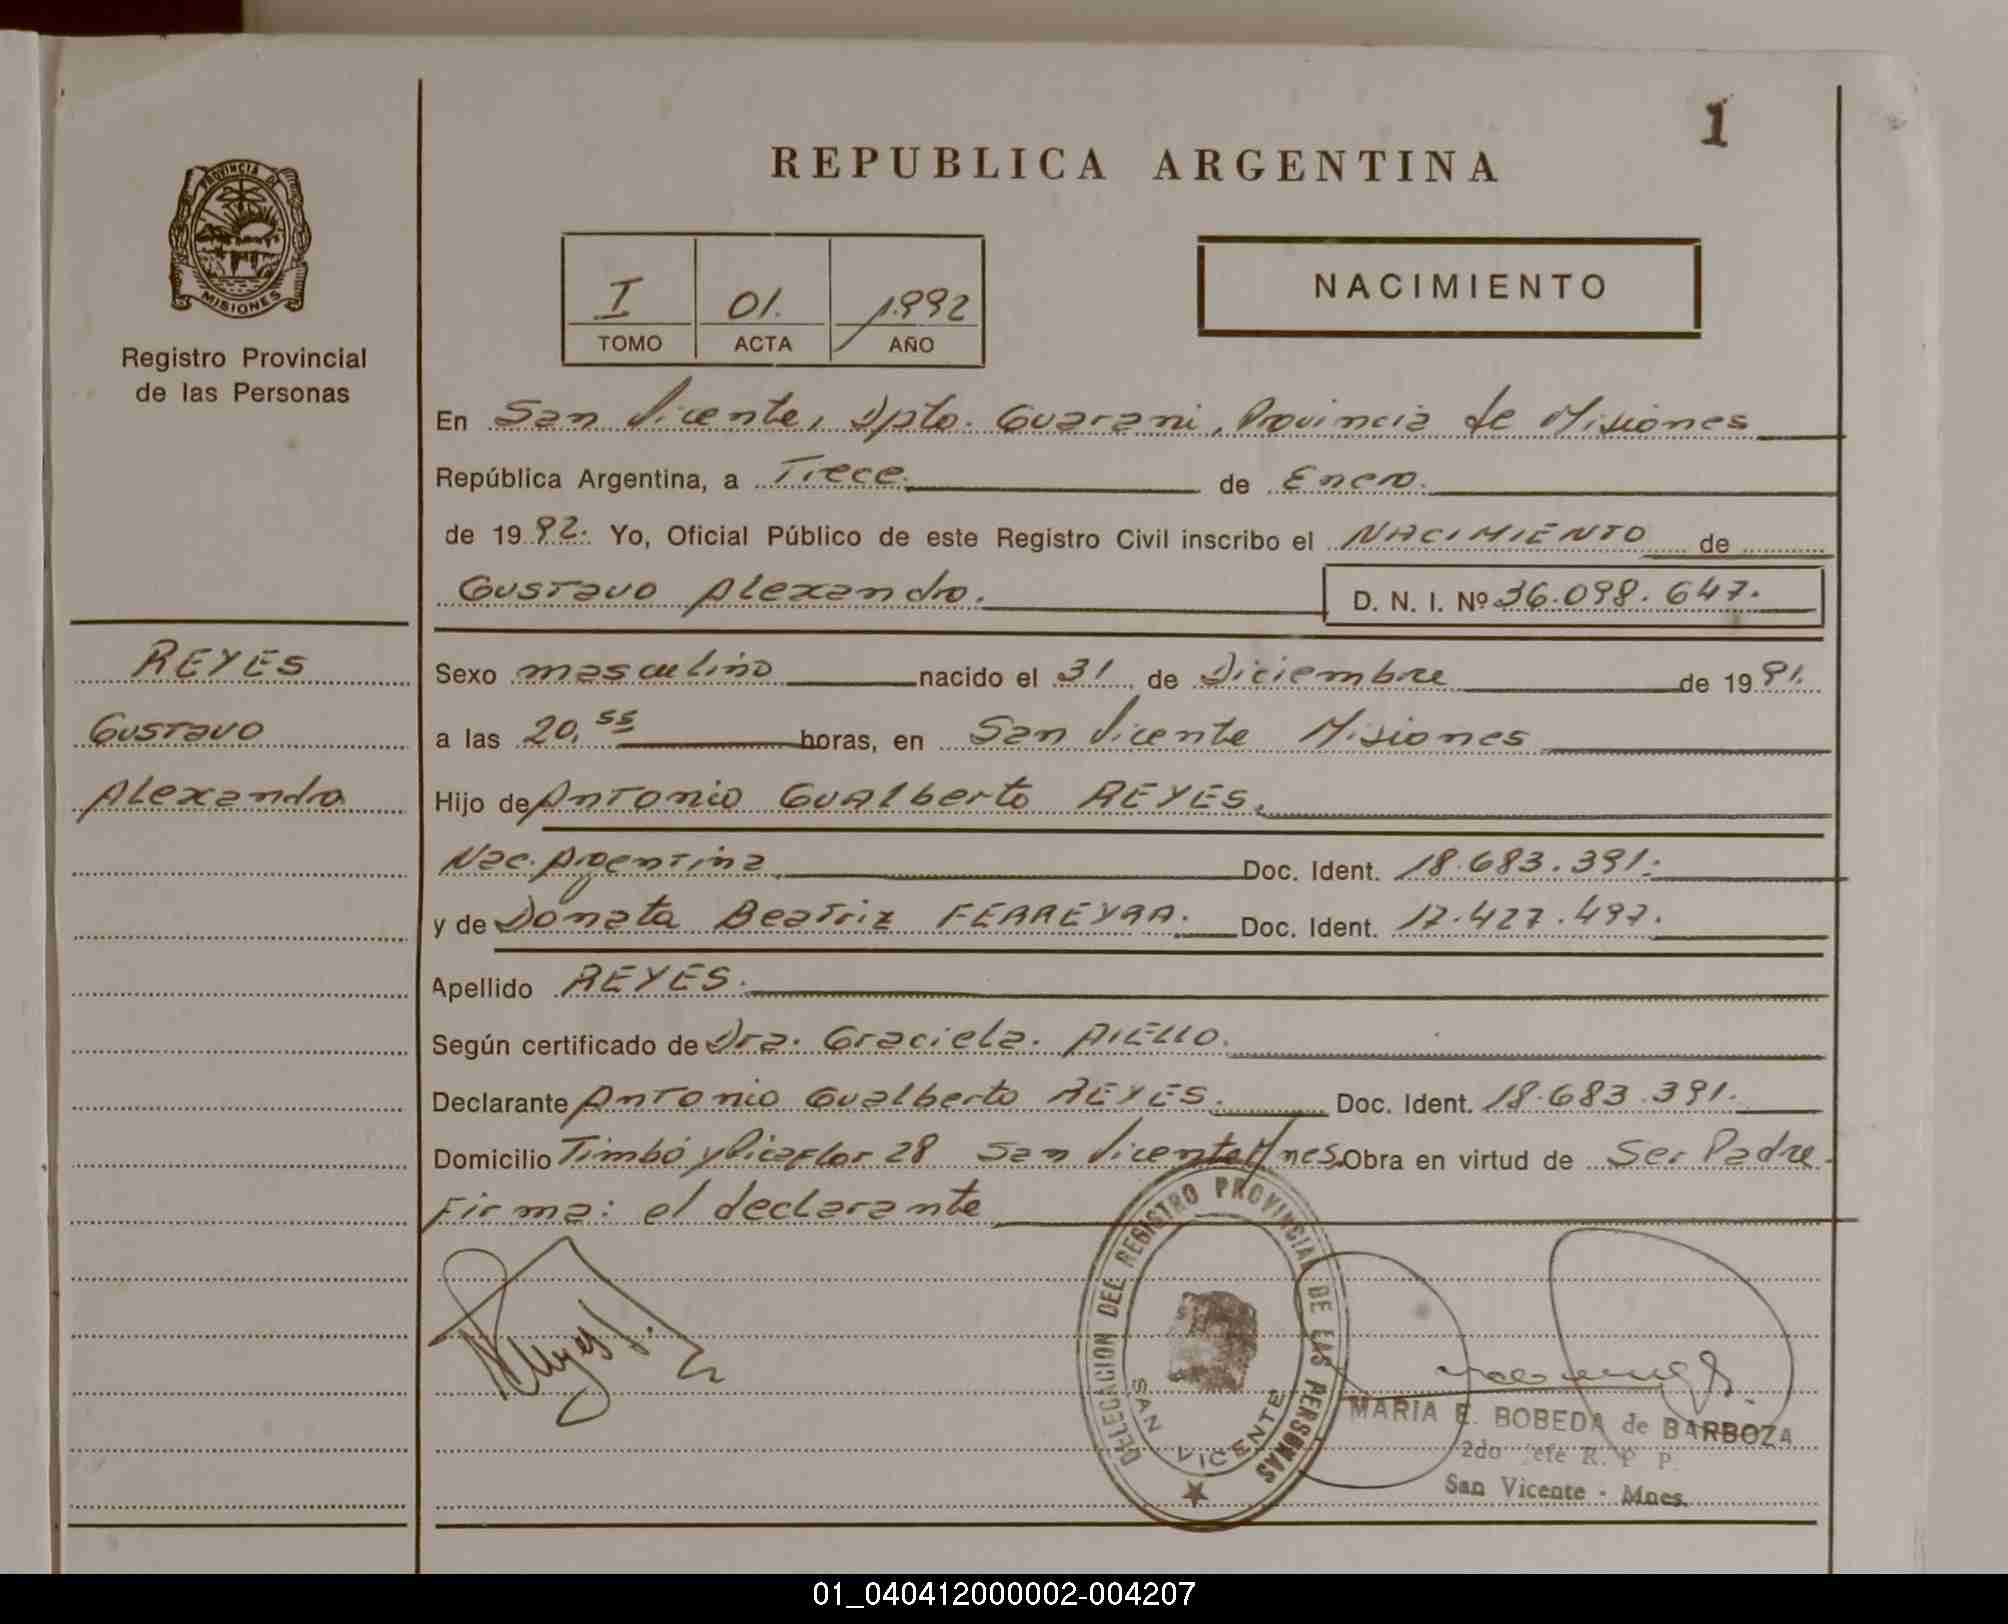 1
REPUBLICA ARGENTINA
PROVINCIA DE
MISIONES
Registro Provincial
de las Personas
I 01. 1992
TOMO ACTA AÑO
NACIMIENTO
En San Vicente, Dpto. Guarani, Provincia de Misiones
República Argentina, a Trece. de Enero.
de 19 92. Yo, Oficial Público de este Registro Civil inscribo el NACIMIENTO de
Gustavo Alexandro. D. N. I. Nº 36.098.647.
REYES
Gustavo
Alexandro
Sexo masculino nacido el 31 de Diciembre de 19 91.
a las 20,55 horas, en San Vicente Misiones
Hijo de Antonio Gualberto REYES.
Nac. Argentina Doc. Ident. 18.683.391.
y de Donata Beatriz FERREYRA. Doc. Ident. 17.427.497.
Apellido REYES.
Según certificado de Dra. Graciela. AIELLO.
Declarante Antonio Gualberto REYES. Doc. Ident. 18.683.391.
Domicilio Timbó y Picaflor 28 San Vicente Mnes. Obra en virtud de Ser Padre.
Firma: el declarante
DELEGACION DEL REGISTRO PROVINCIAL DE LAS PERSONAS
SAN VICENTE
MARIA E. BOBEDA de BARBOZA
2do Jefe R. P. P.
San Vicente - Mnes.
01_040412000002-004207